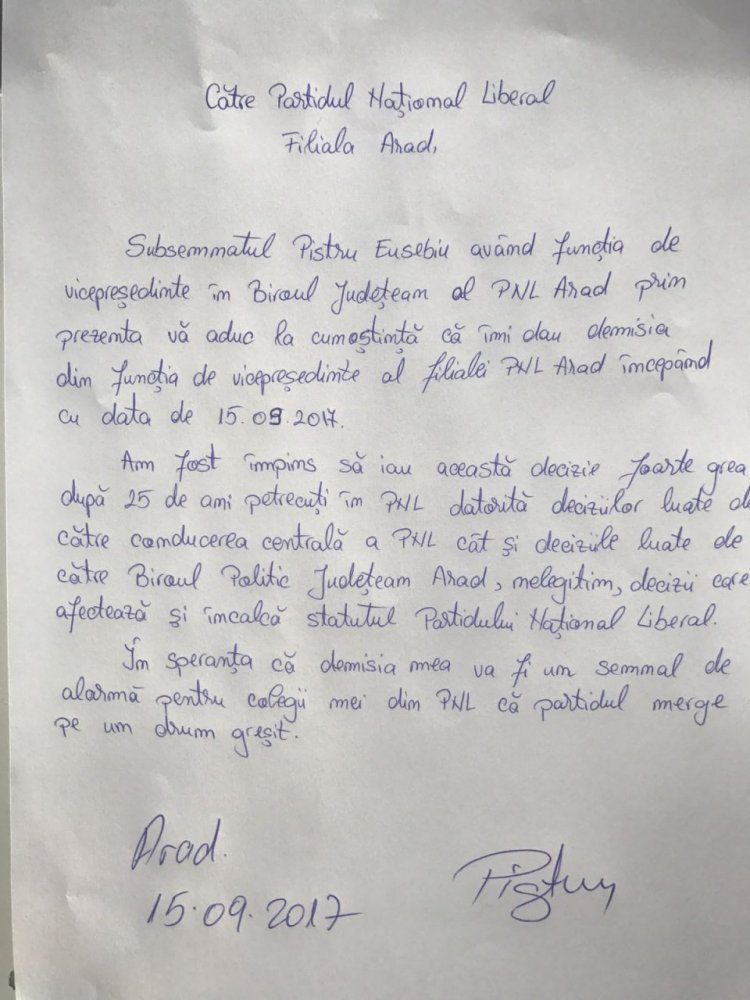 Către Partidul Național Liberal
Filiala Arad,
Subsemnatul Pistru Eusebiu având funcția de
vicepreședinte în Biroul Județean al PNL Arad prin
prezenta vă aduc la cunoștință că îmi dau demisia
din funcția de vicepreședinte al filialei PNL Arad începând
cu data de 15.09.2017.
Am fost împins să iau această decizie foarte grea
după 25 de ani petrecuți în PNL datorită deciziilor luate de
către conducerea centrală a PNL cât și deciziile luate de
către Biroul Politic Județean Arad, nelegitim, decizii care
afectează și încalcă statutul Partidului Național Liberal.
În speranța că demisia mea va fi un semnal de
alarmă pentru colegii mei din PNL că partidul merge
pe un drum greșit.
Arad.
15.09.2017